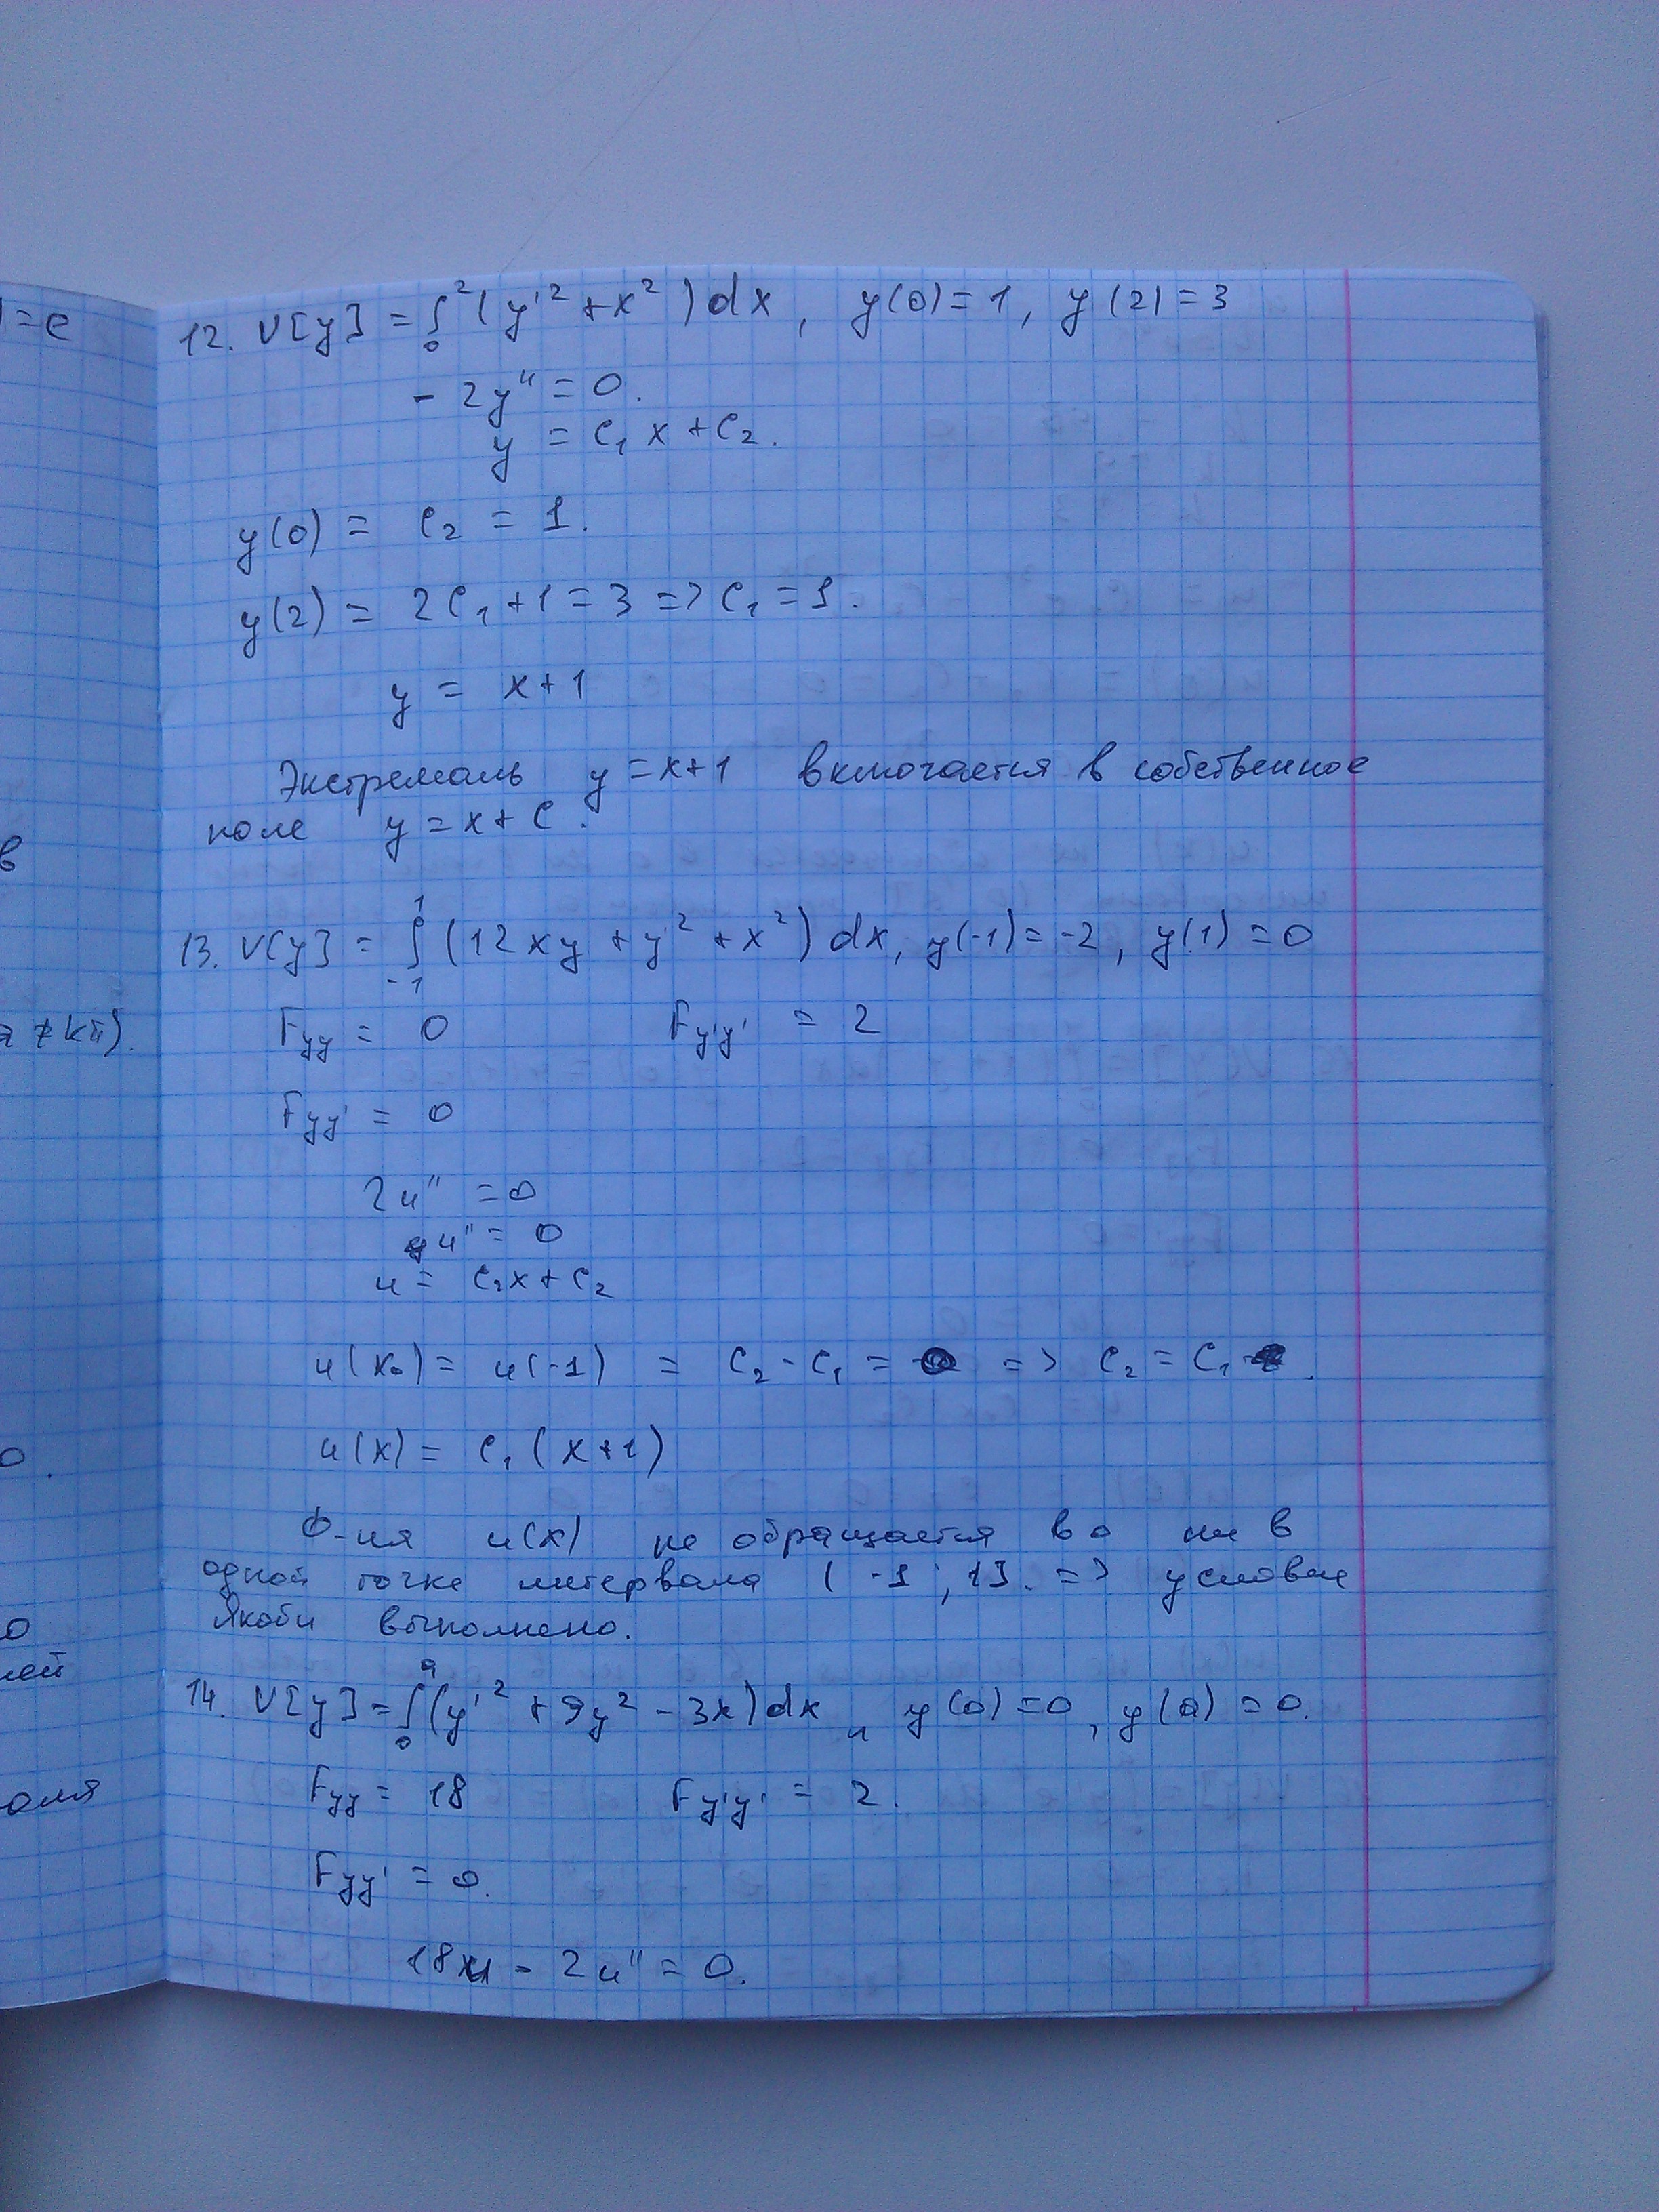 )=e
в
a ≠ kπ).
0.
о
лей
оля
12. V[y] = ∫₀² (y'² + x²) dx, y(0)=1, y(2)=3
- 2y'' = 0.
y = C₁x + C₂.
y(0) = C₂ = 1.
y(2) = 2C₁ + 1 = 3 => C₁ = 1.
y = x+1
Экстремаль y = x+1 включается в собственное
поле y = x + C.
13. V[y] = ∫₋₁¹ (12xy + y'² + x²) dx, y(-1) = -2, y(1) = 0
Fyy = 0 Fy'y' = 2
Fyy' = 0
2u'' = 0
u'' = 0
u = C₂x + C₂
u(x₀) = u(-1) = C₂ - C₁ = 0 => C₂ = C₁.
u(x) = C₁(x+1)
Ф-ия u(x) не обращается в 0 ни в
одной точке интервала (-1; 1]. => условие
Якоби выполнено.
14. V[y] = ∫₀ᵃ (y'² + 9y² - 3x) dx, y(0)=0, y(a)=0.
Fyy = 18 Fy'y' = 2.
Fyy' = 0.
18u - 2u'' = 0.